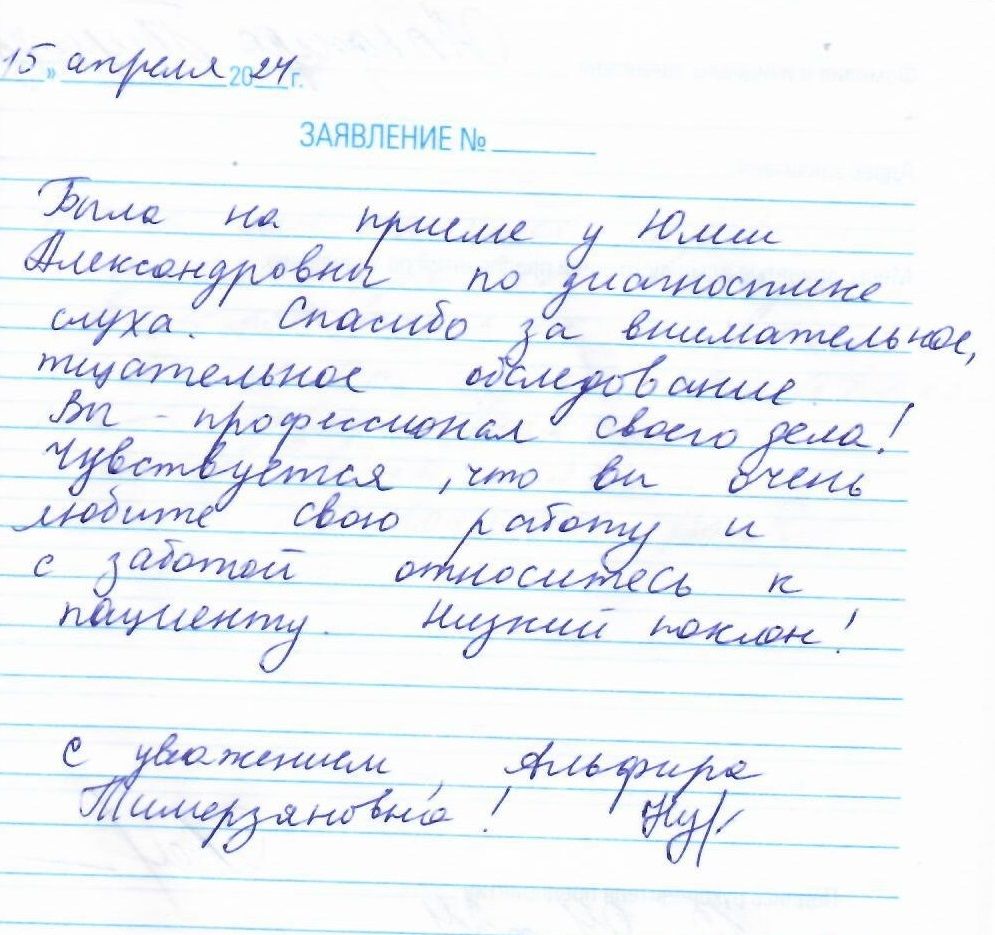 15 » апреля 2024 г.
ЗАЯВЛЕНИЕ №
Была на приеме у Юлии
Александровны по диагностике
слуха. Спасибо за внимательное,
тщательное обследование.
Вы - профессионал своего дела!
Чувствуется, что вы очень
любите свою работу и
с заботой относитесь к
пациенту. Низкий поклон!
С уважением, Альфира
Тимерзяновна!